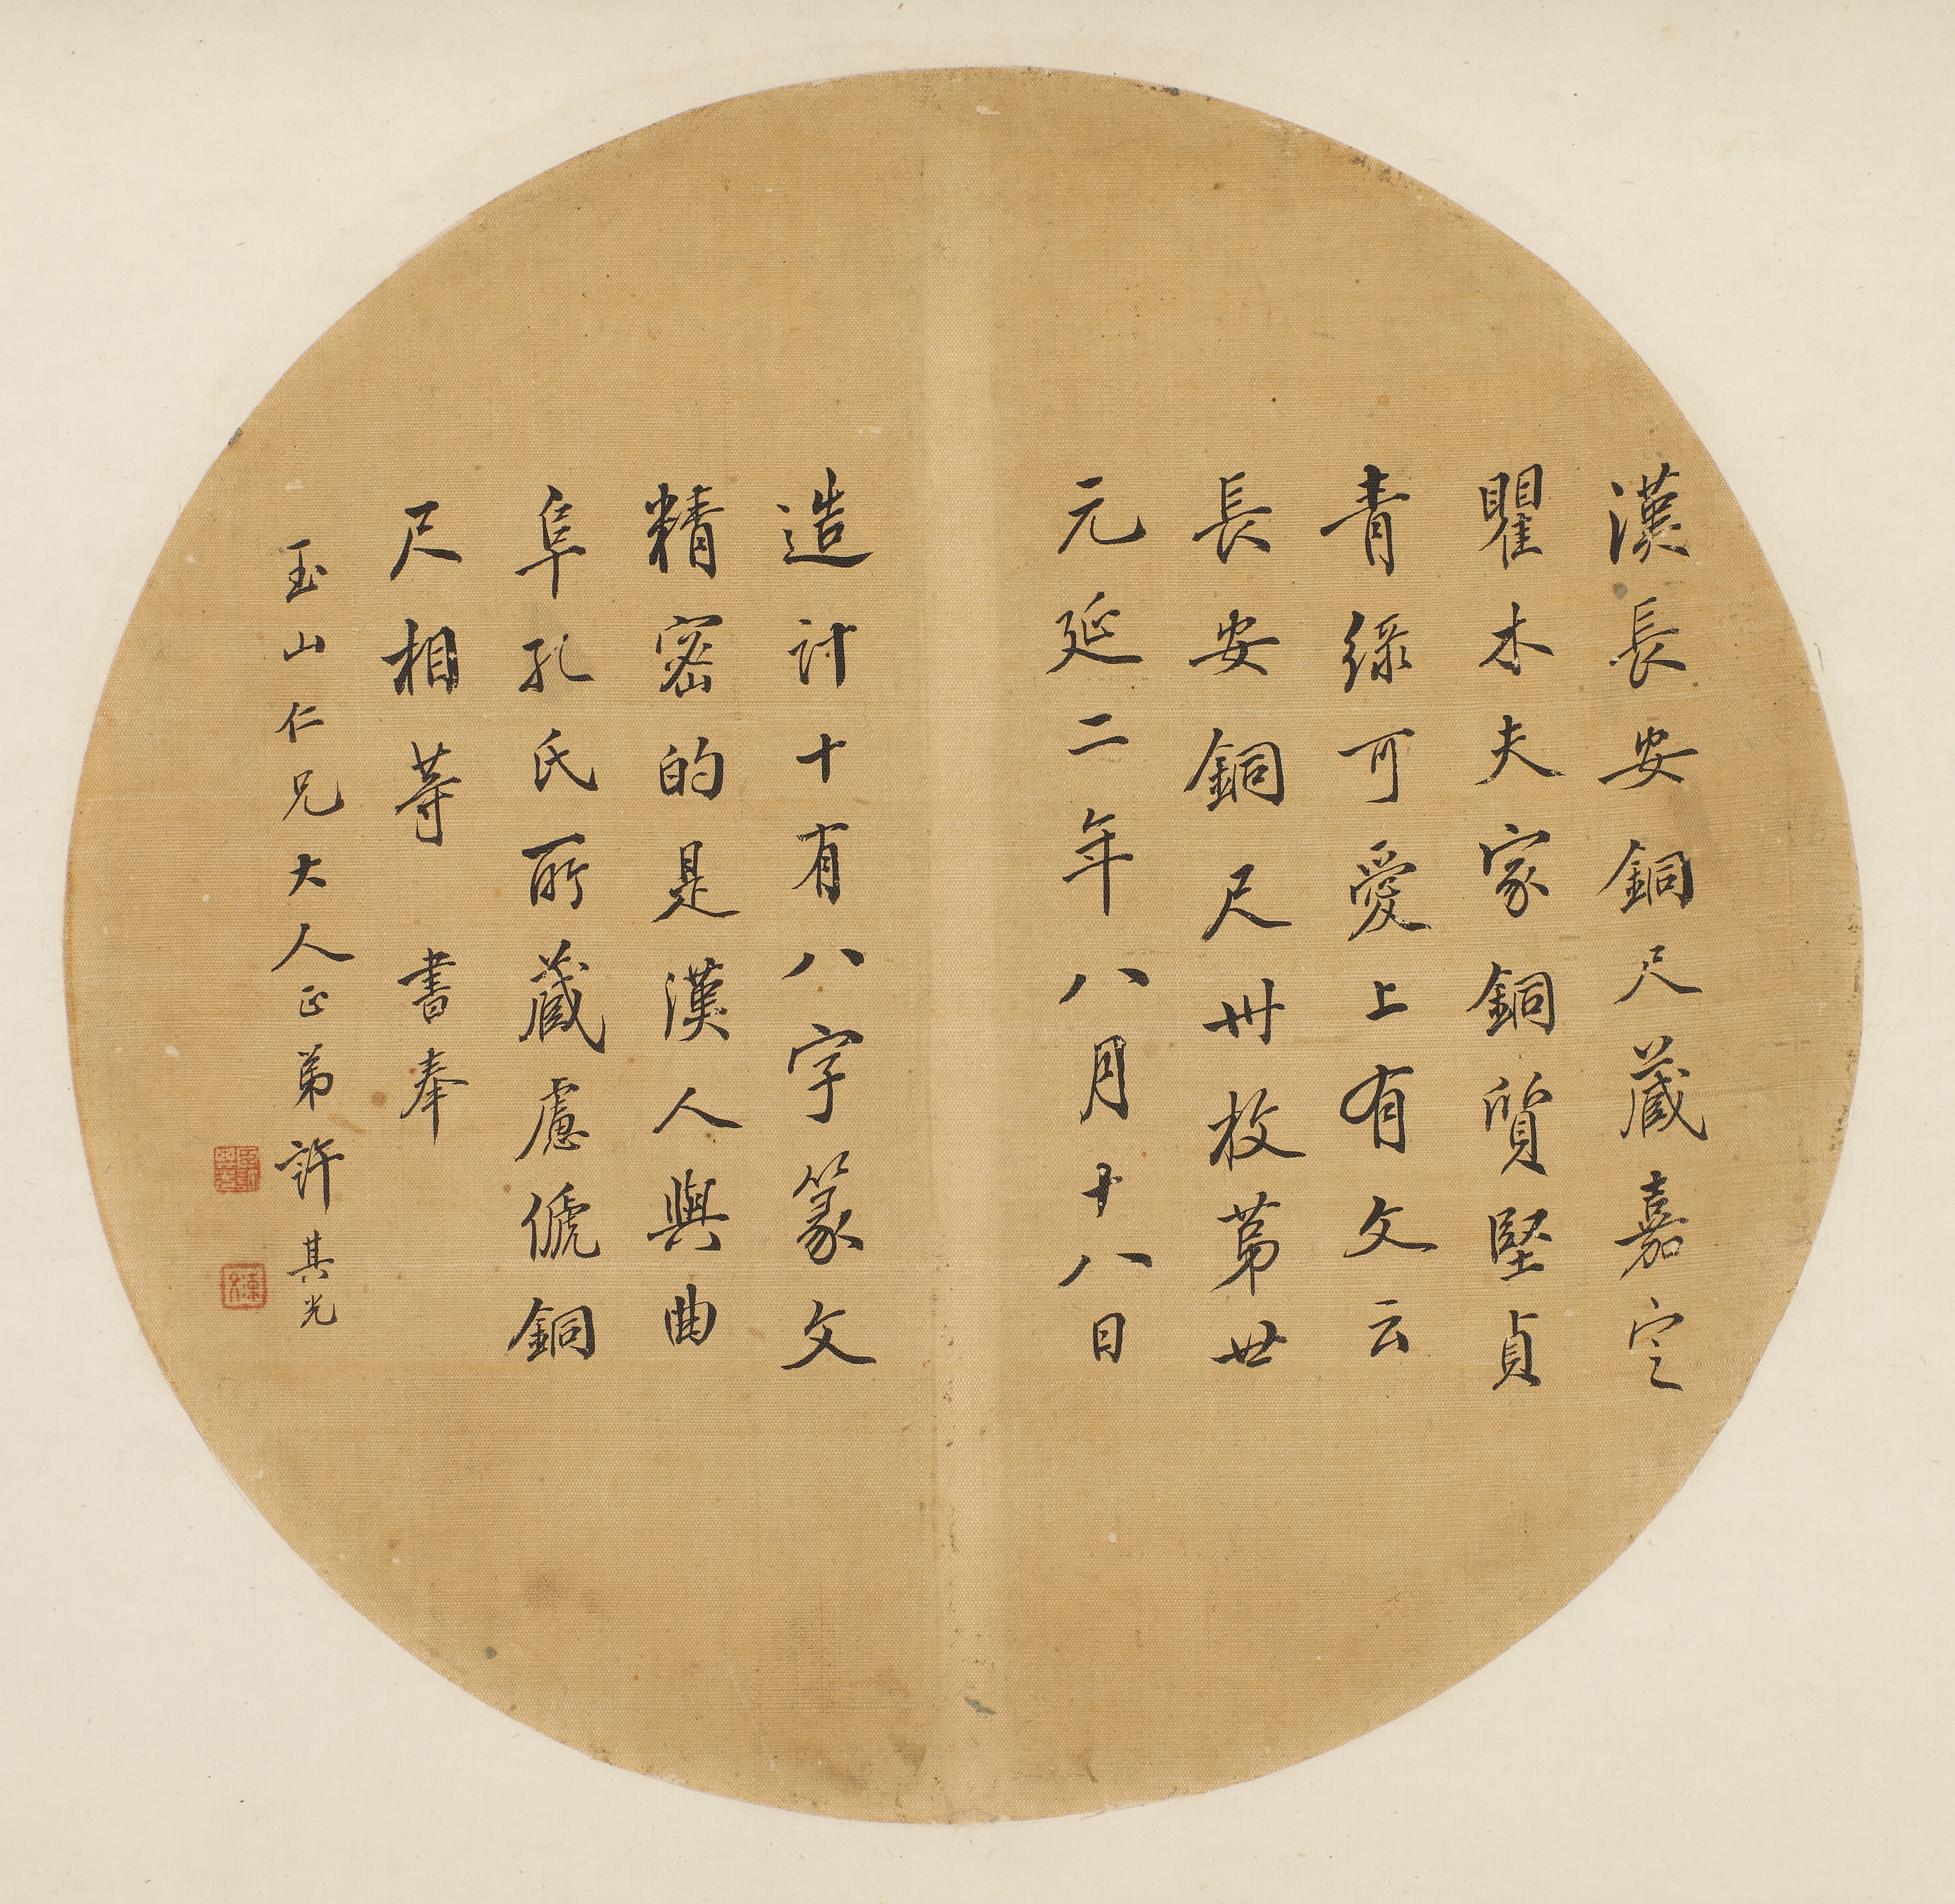 漢長安銅尺藏嘉定
瞿木夫家銅質堅貞
青綠可愛上有文云
長安銅尺卅枚第廿
元延二年八月十八日
造計十有八字篆文
精密的是漢人與曲
阜孔氏所藏慮俿銅
尺相等 書奉
玉山仁兄大人正弟許其光